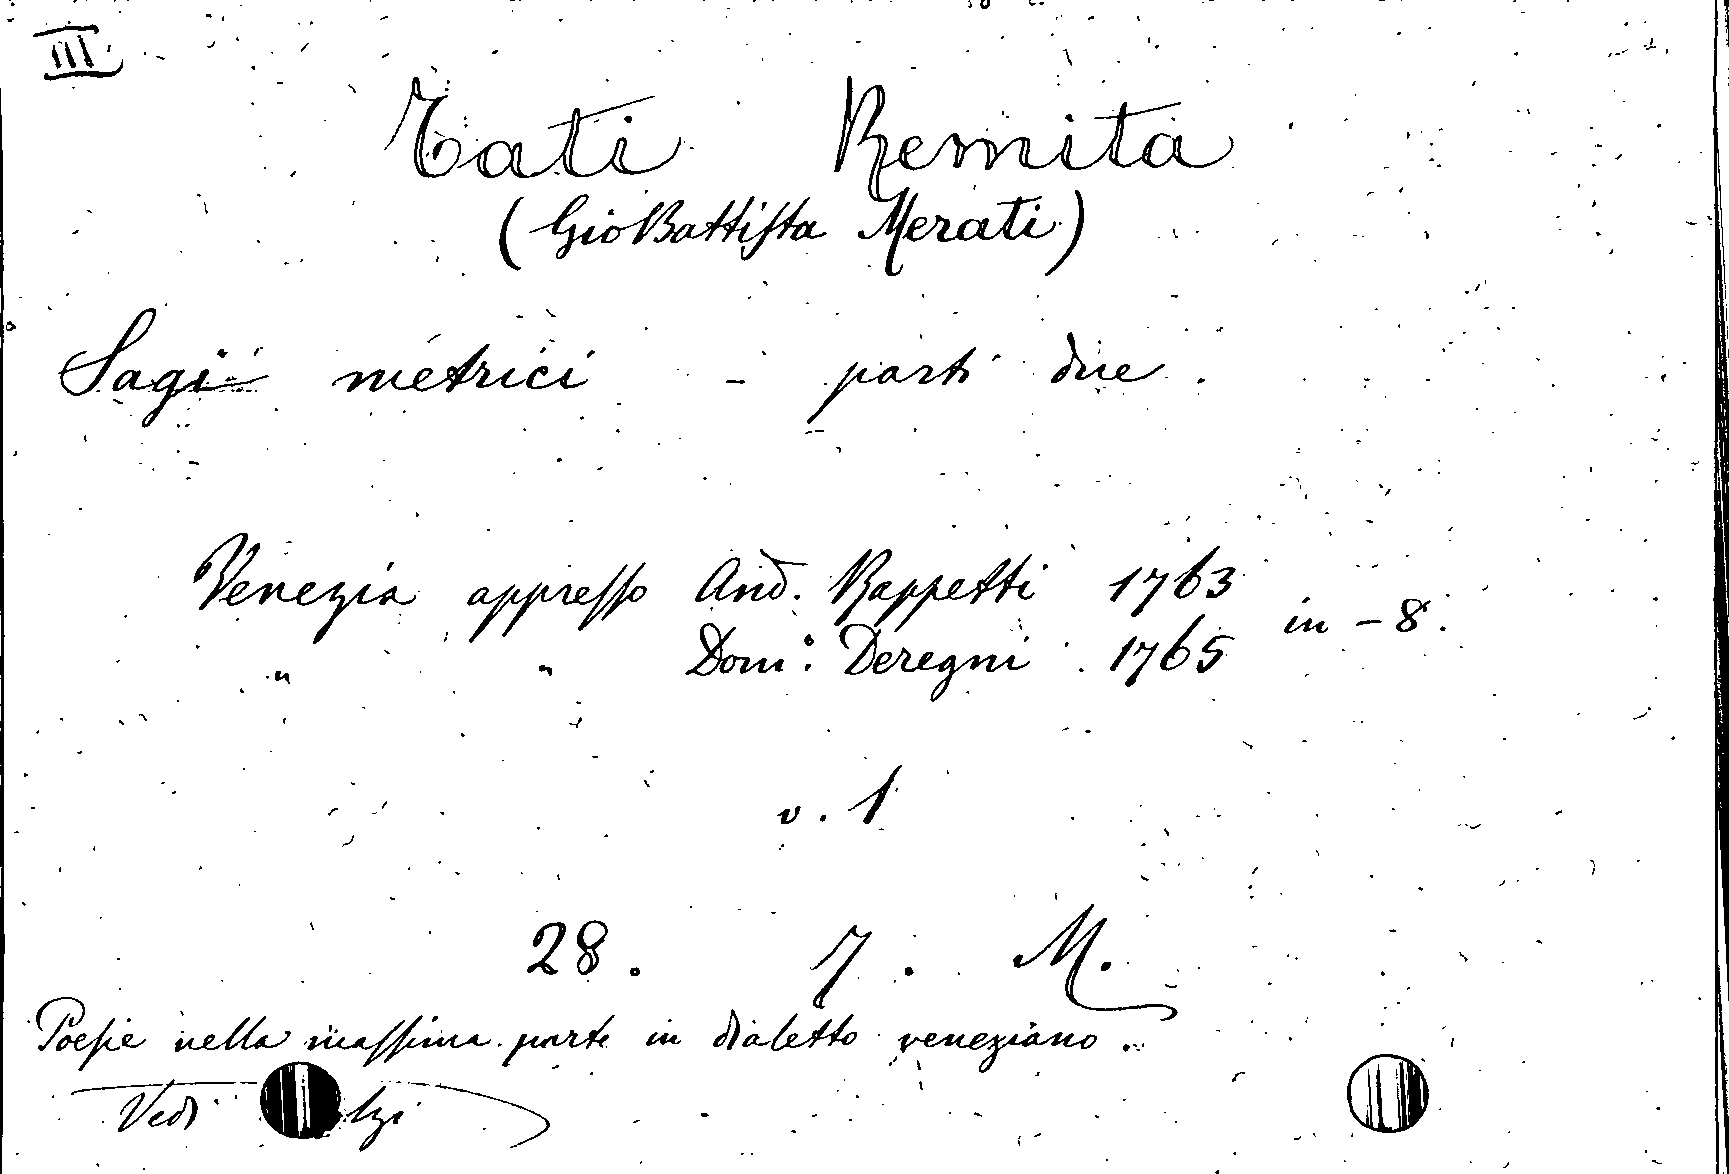 III
Tati Remita
(Gio Battista Merati)
Sagi metrici - parti due.
Venezia appresso And. Rappetti 1763
in-8.
" " Dom.º Deregni 1765
v. 1
28. 7. M.
Poesie nella massima parte in dialetto veneziano.
Vedi